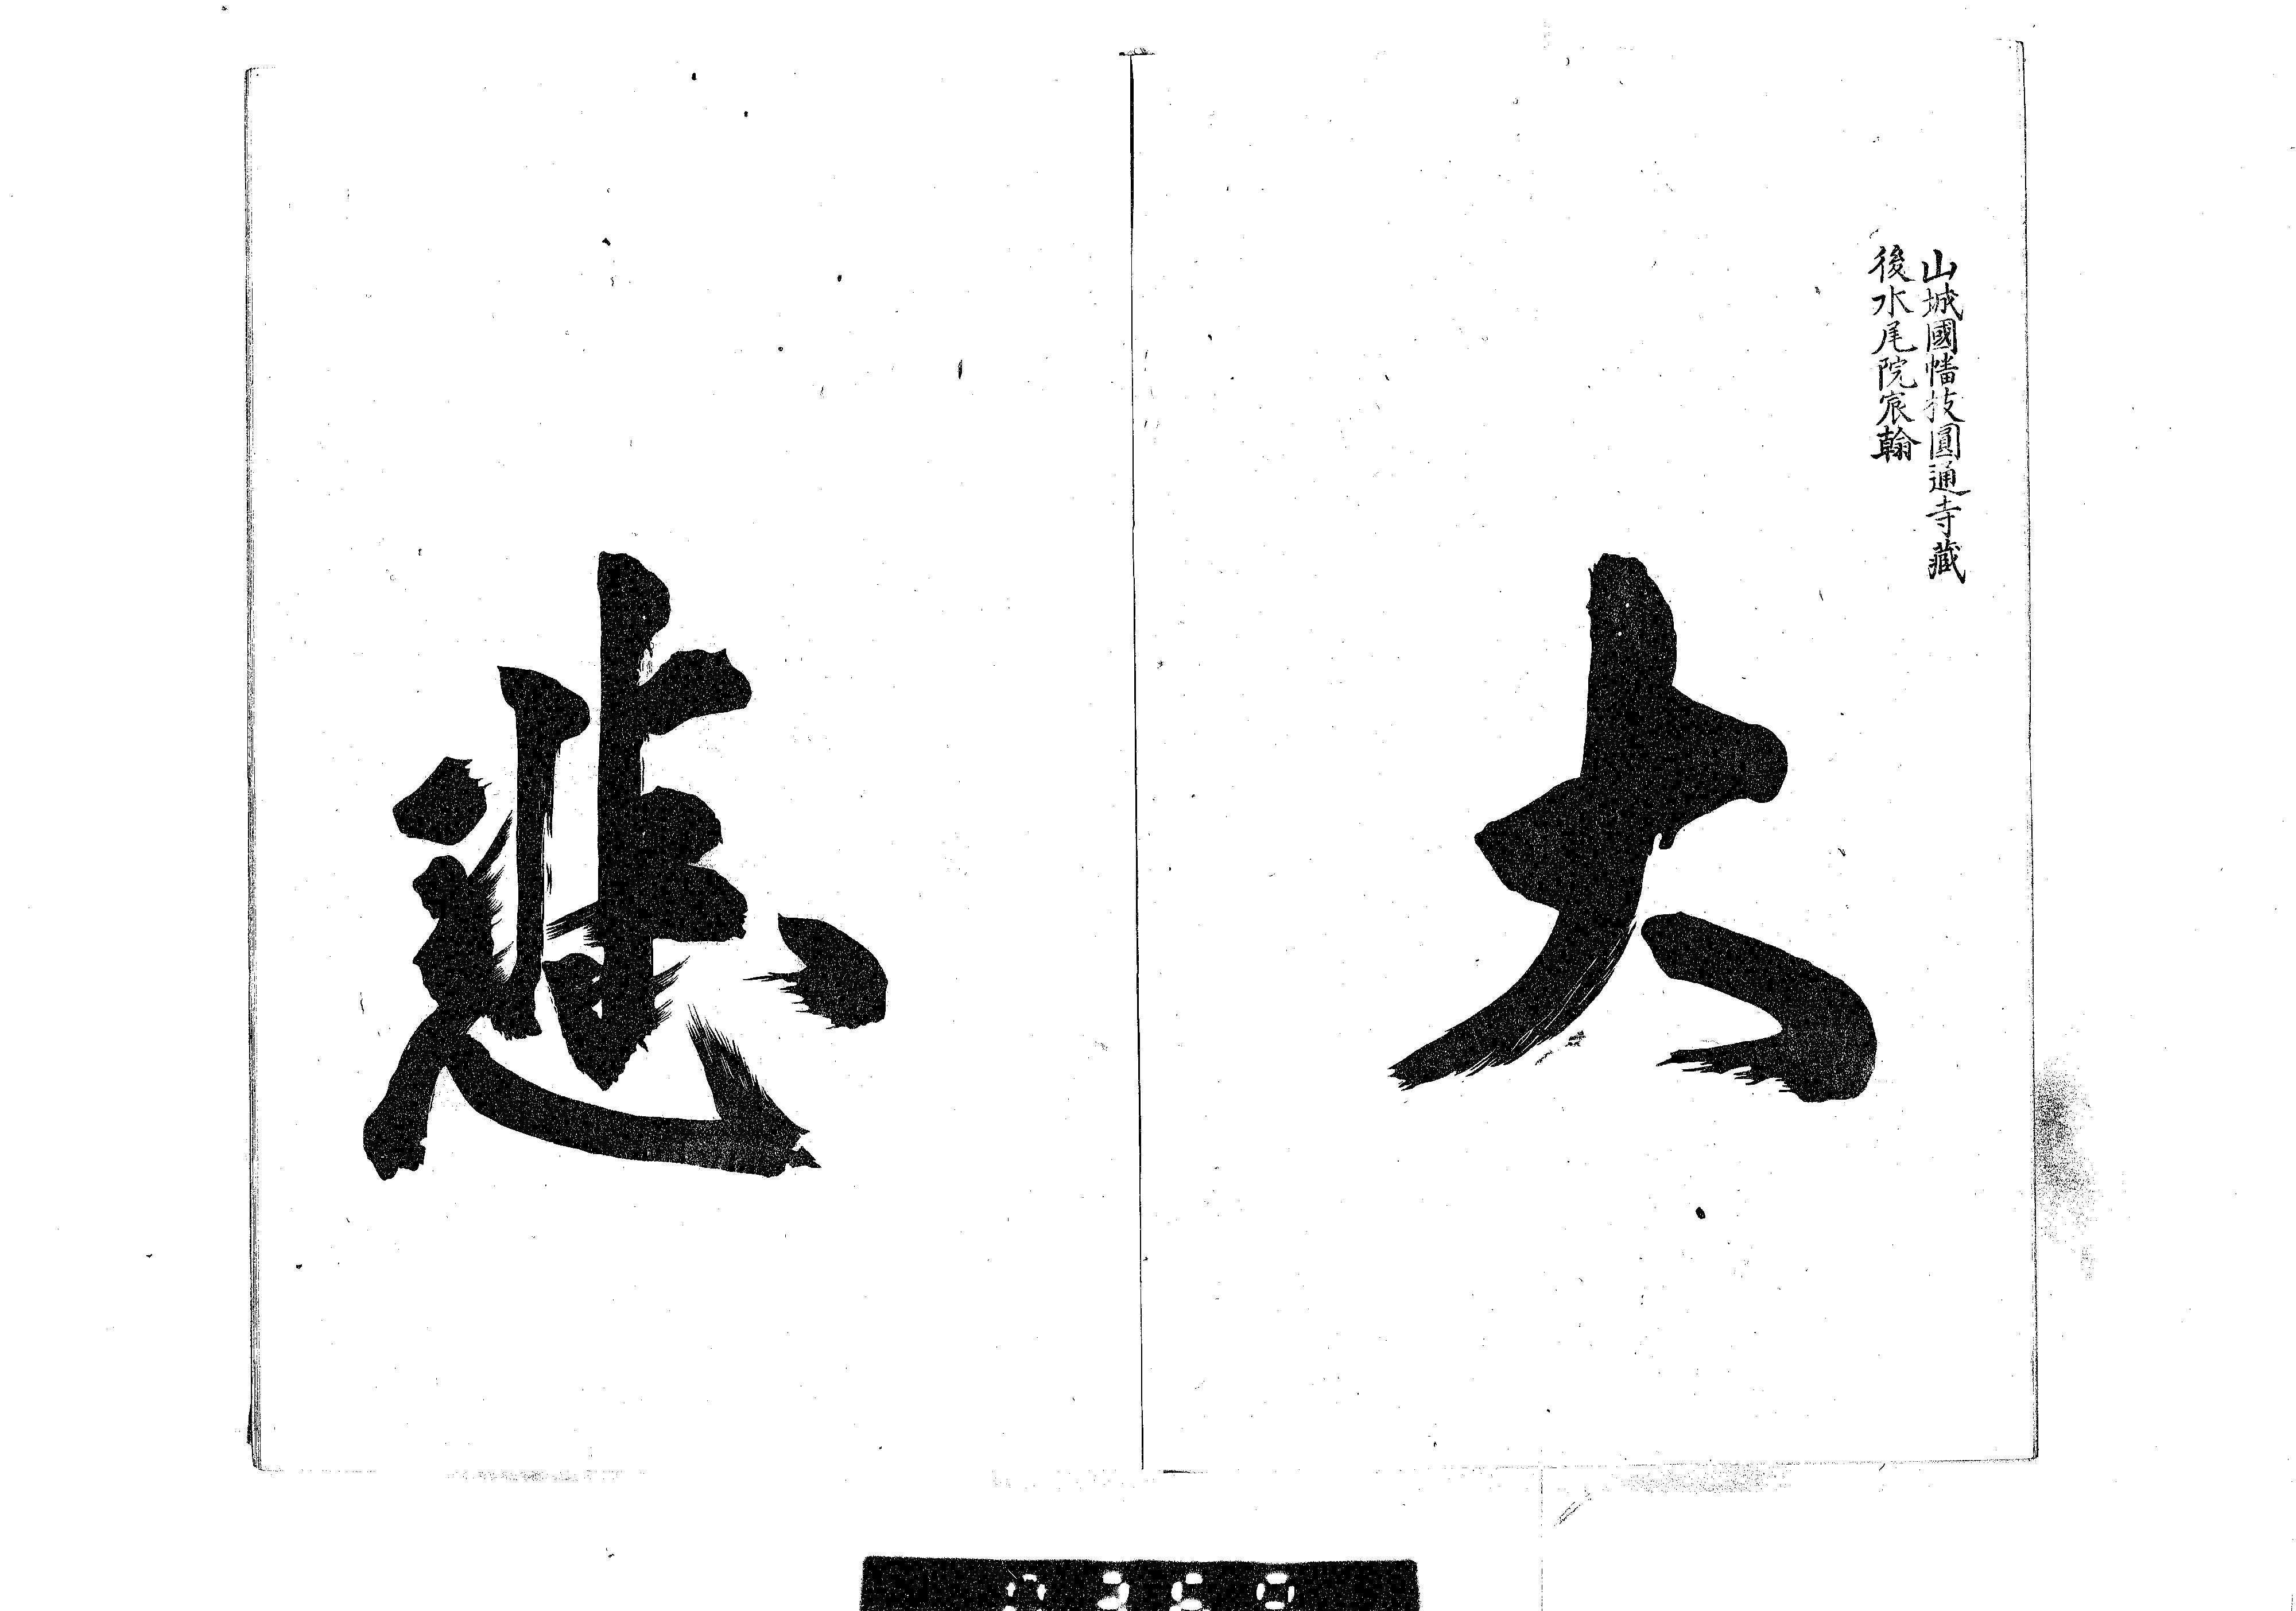 山城國幡枝圓通寺藏
後水尾院宸翰
大
悲